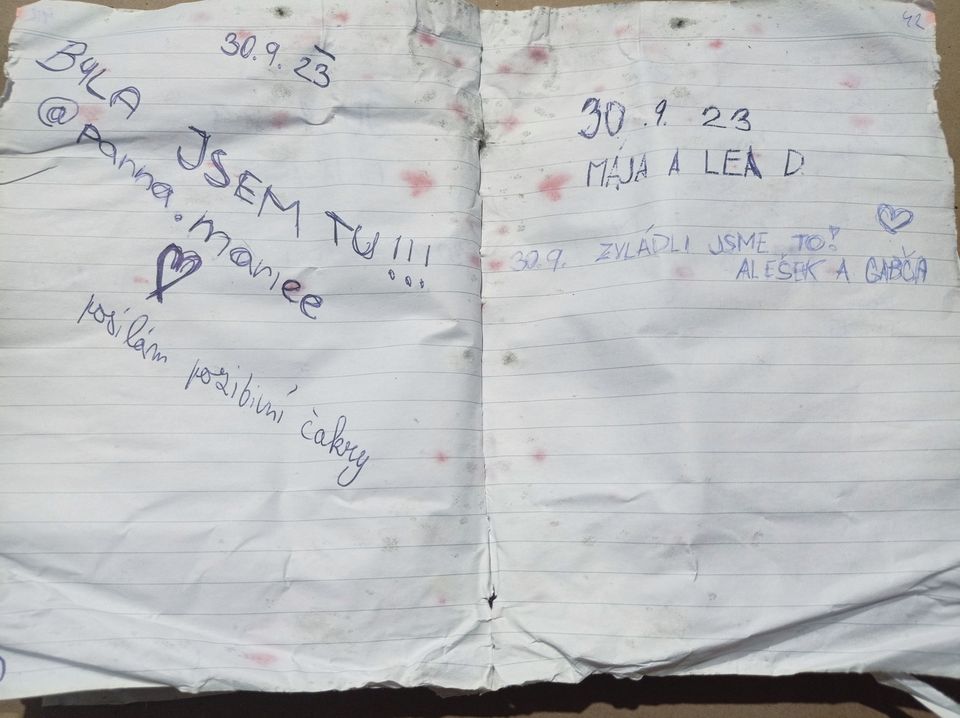 30.9. 23
BYLA JSEM TU!!!
@panna.mariee
posílám pozitivní čakry
42
30.9. 23
MÁJA A LEA D
30.9. ZVLÁDLI JSME TO!
ALEŠEK A GABČA